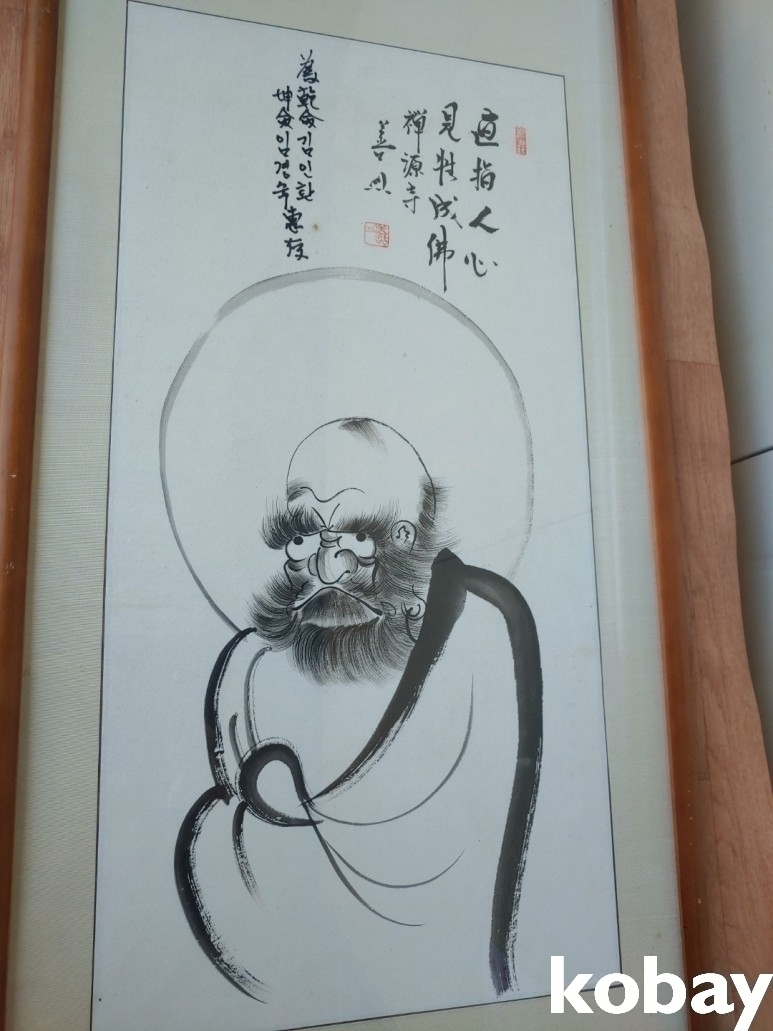 直指人心
見性成佛
禪源寺
善
爲乾命김인환
坤命임경숙惠存
kobay